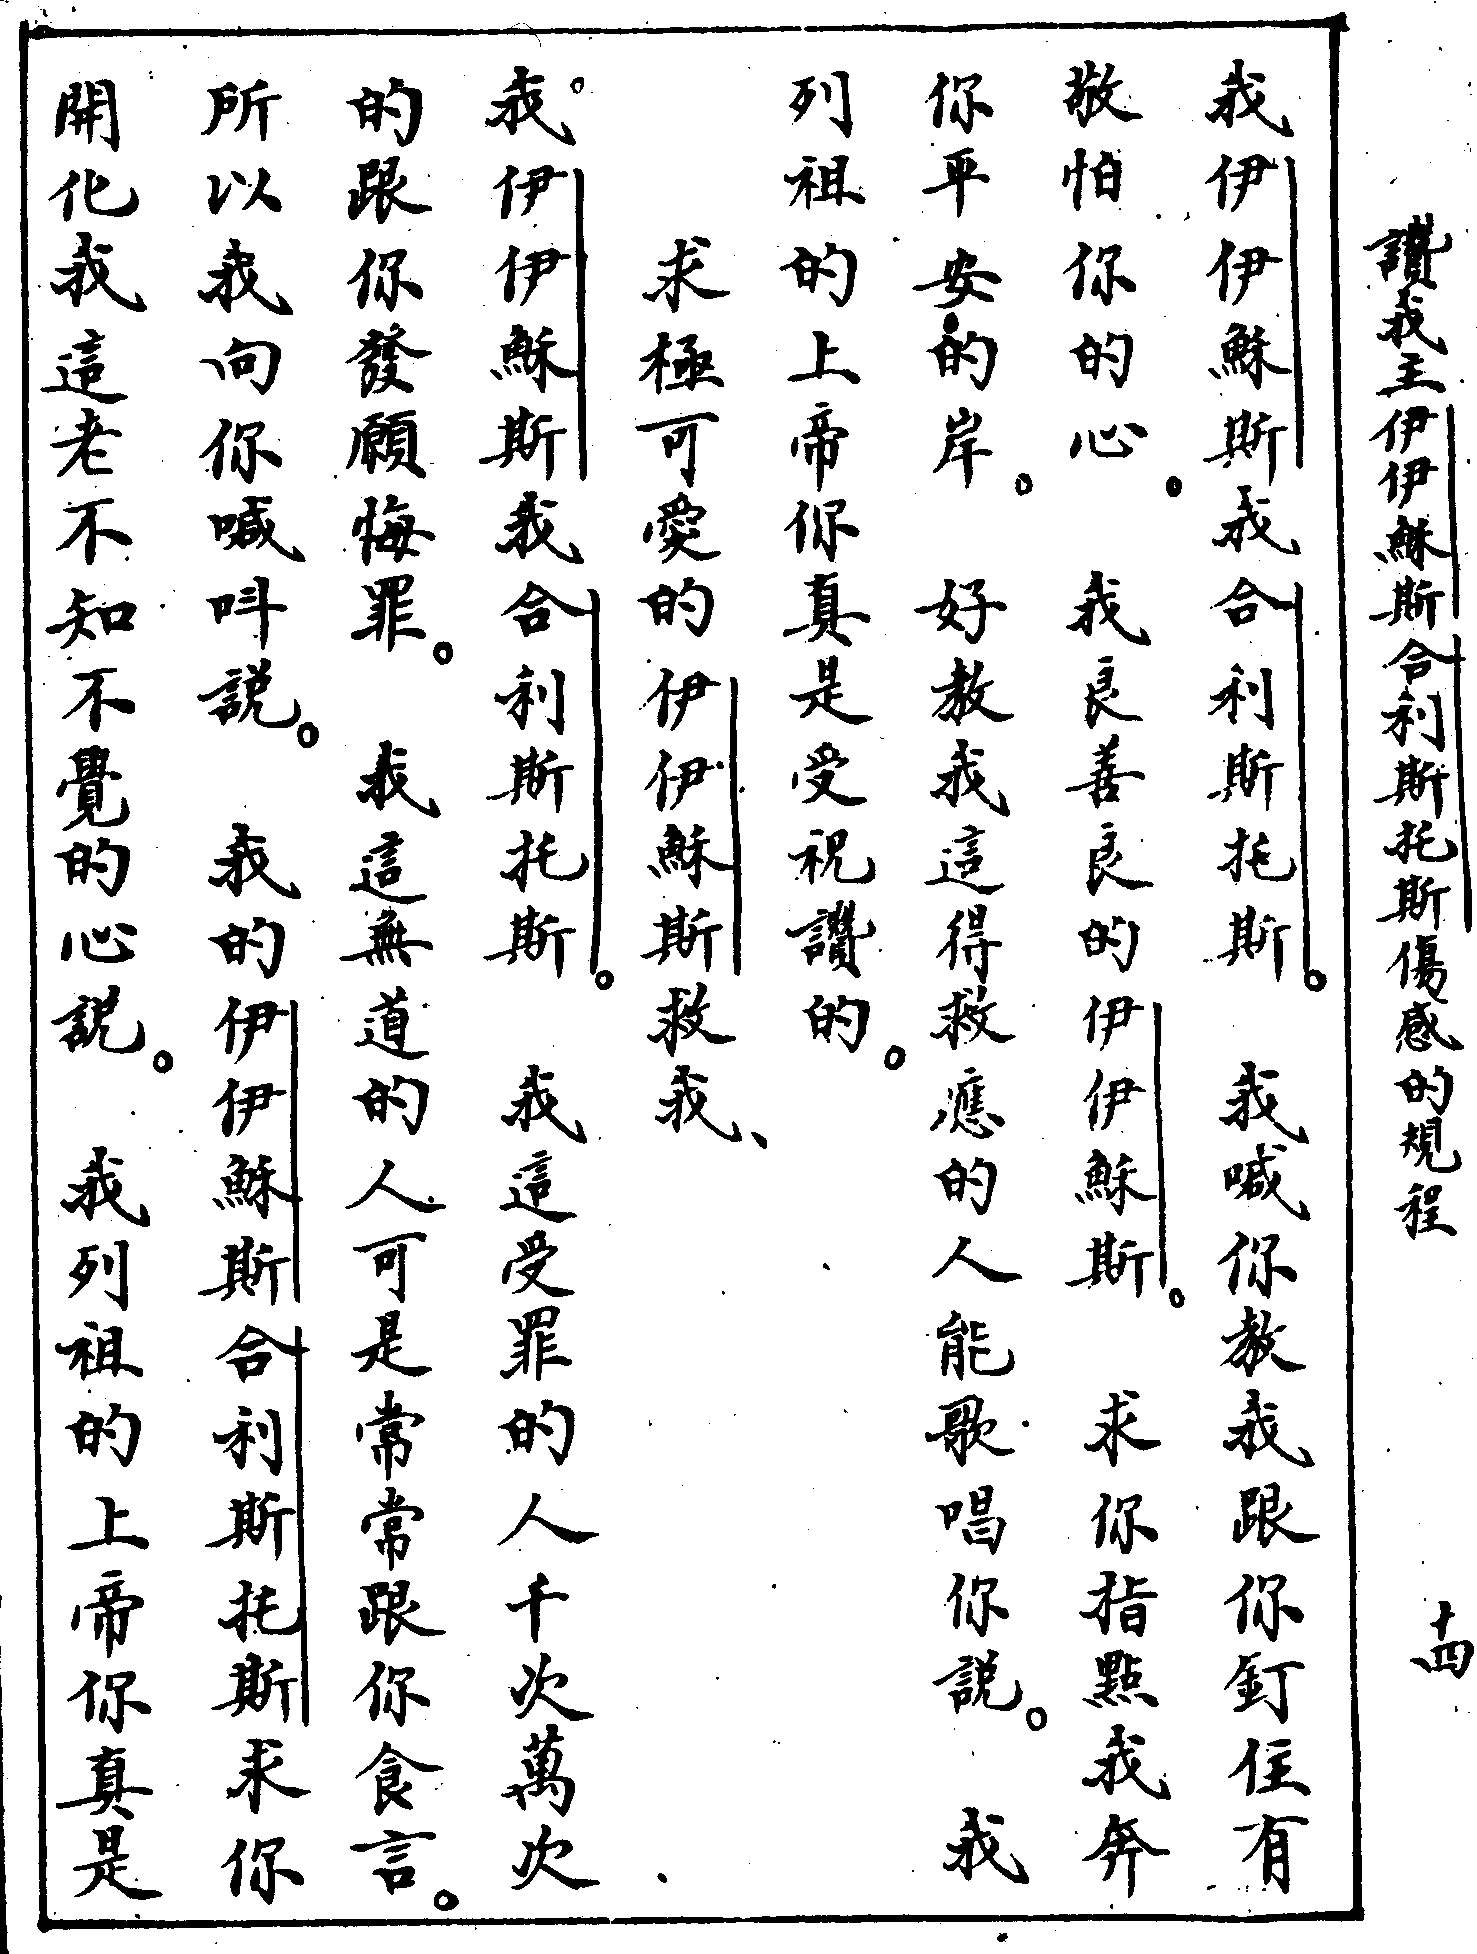 讚我主伊伊穌斯合利斯托斯傷感的規程
十四
我伊伊穌斯我合利斯托斯。我喊你教我跟你釘住有
敬怕你的心。我良善良的伊伊穌斯。求你指點我奔
你平安的岸。好教我這得救應的人能歌唱你説。我
列祖的上帝你真是受祝讚的。
求極可愛的伊伊穌斯救我、
我。伊伊穌斯我合利斯托斯。我這受罪的人千次萬次
的跟你發願悔罪。我這無道的人可是常常跟你食言。
所以我向你喊呌説。我的伊伊穌斯合利斯托斯求你
開化我這老不知不覺的心説。我列祖的上帝你真是